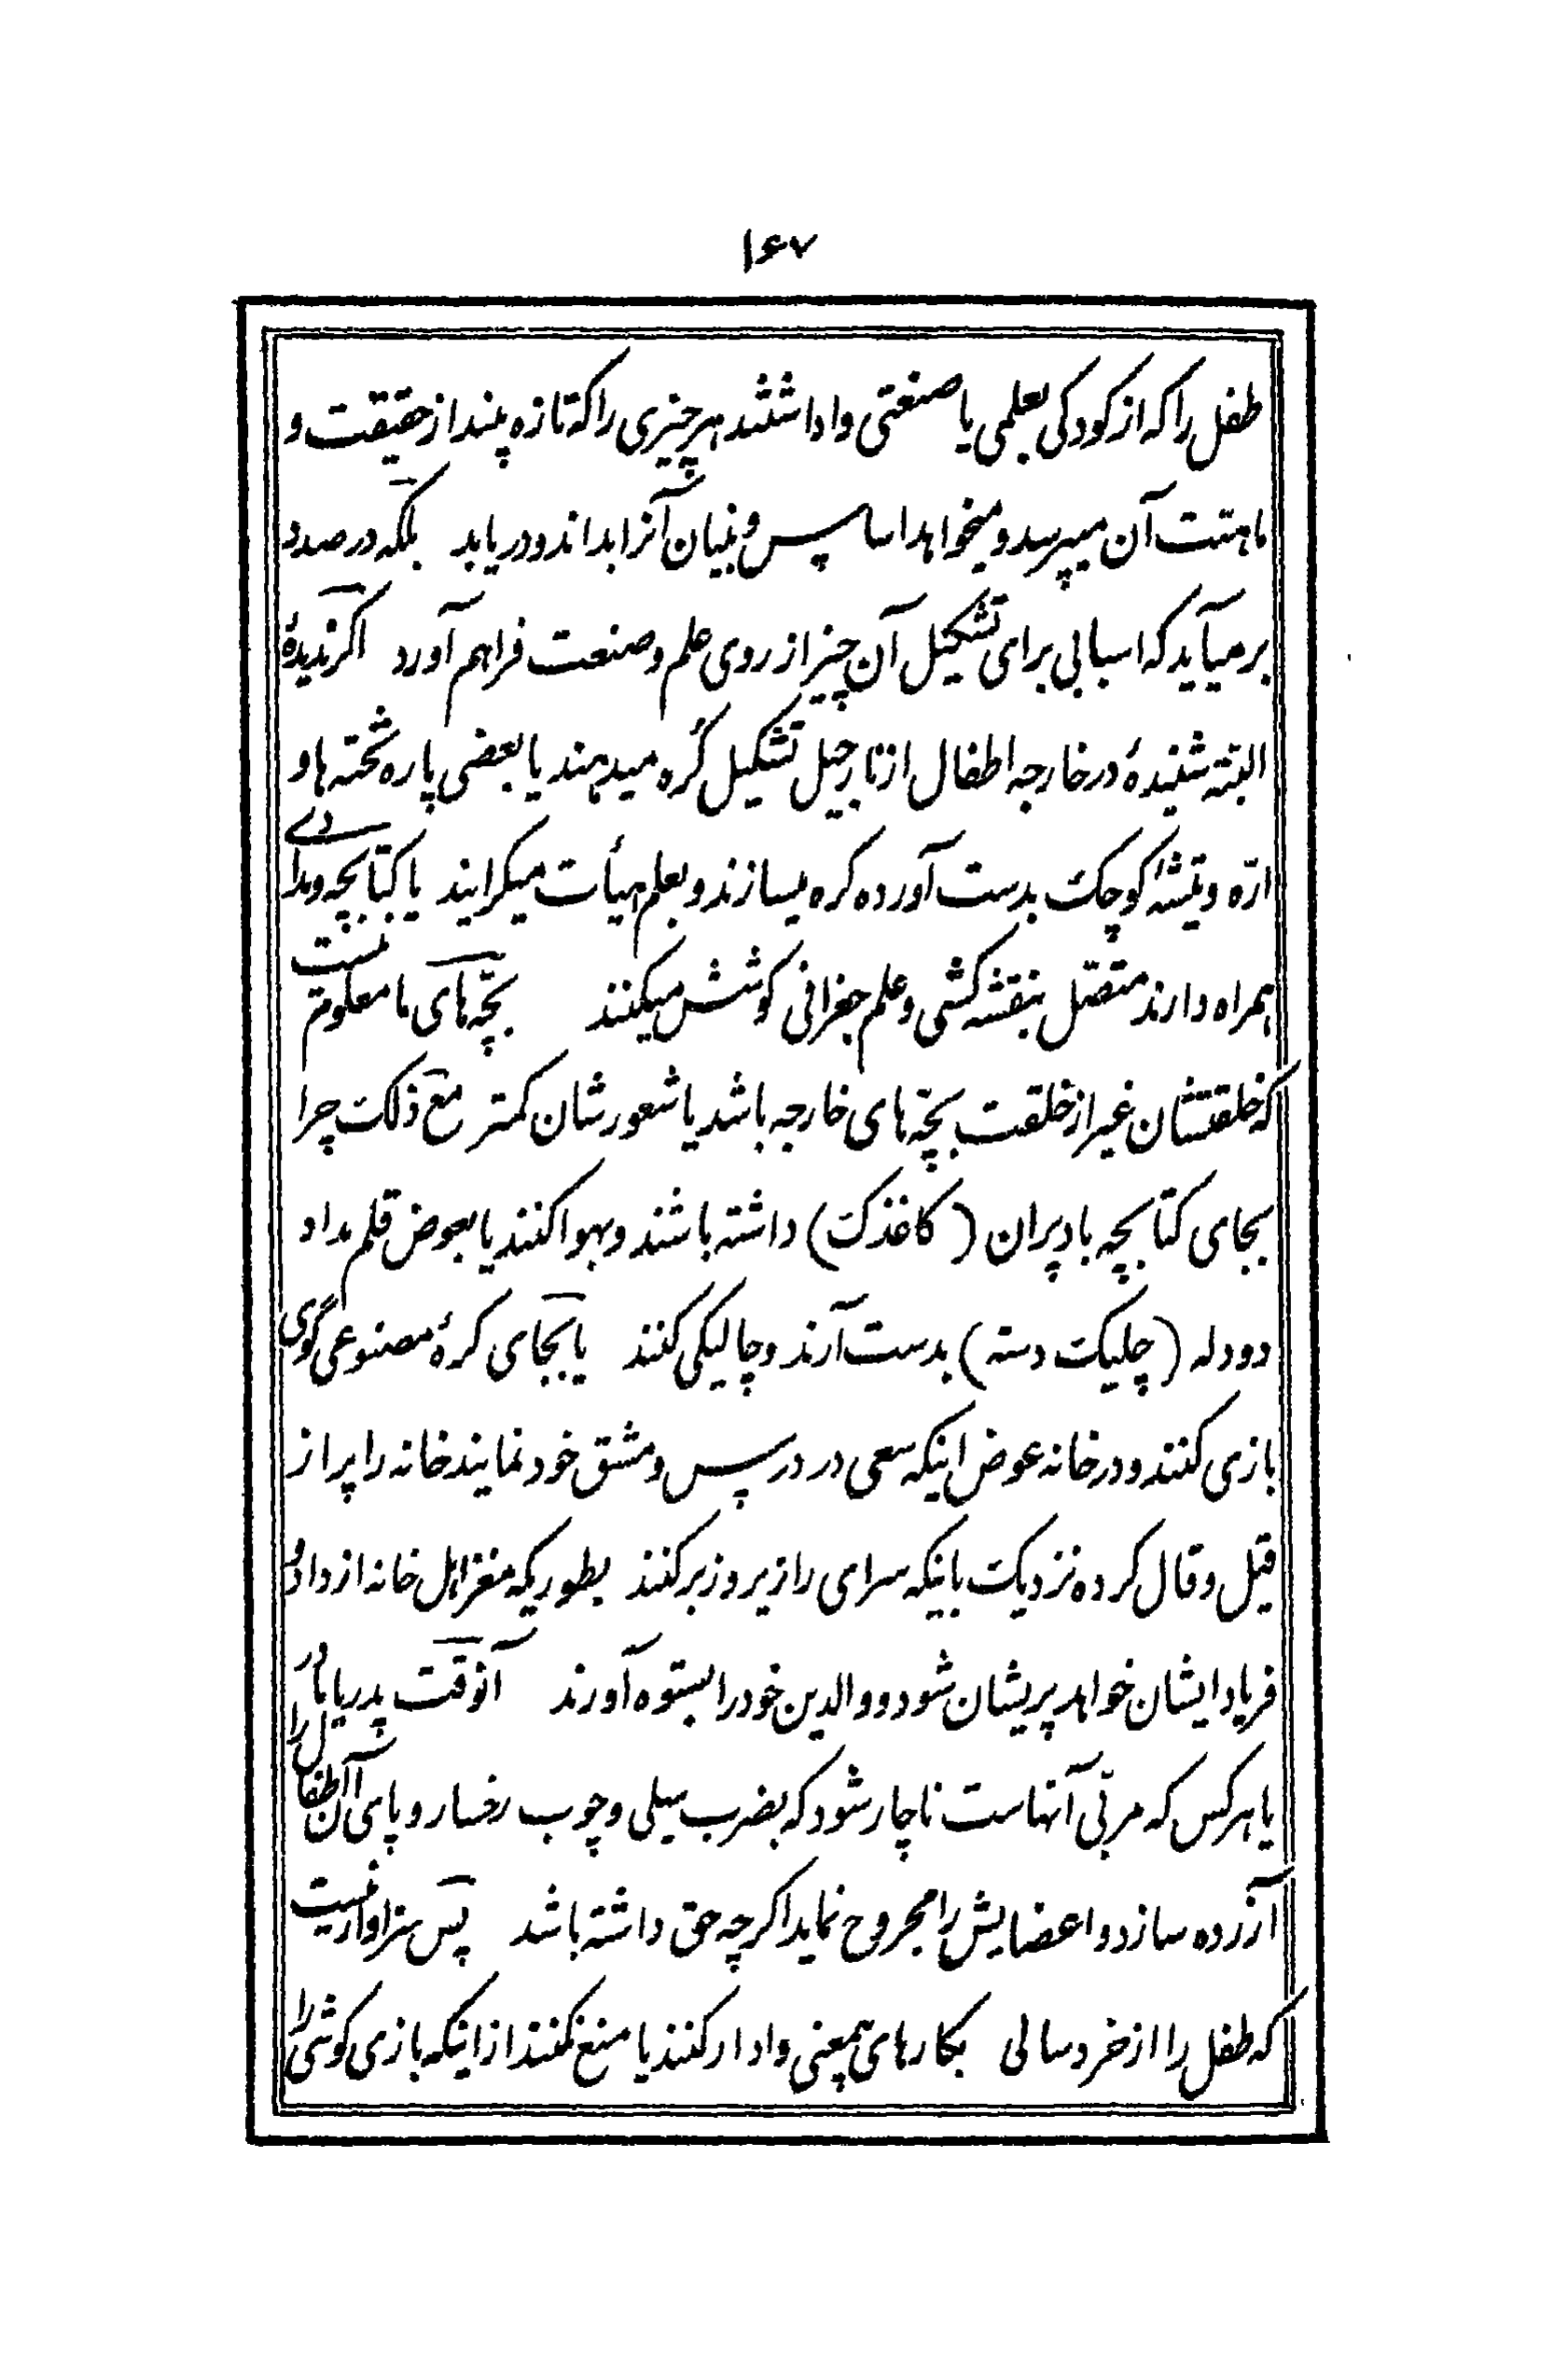 ۱۶۷
طفل را که از کودکی بعلمی یا صنعتی واداشتند هر چیزی را که تازه بیند از حقیقت و
ماهیّت آن میپرسد و میخواهد اساس و بنیان آنرا بداند و دریابد بلکه در صدد
برمیآید که اسبابی برای تشکیل آن چیز از روی علم و صنعت فراهم آورد اگر ندیدهٔ
البتّه شنیدهٔ در خارجه اطفال از نارجیل تشکیل کُره میدهند یا بعضی پاره تخته ها و
ارّه و تیشهٔ کوچک بدست آورده کره میسازند و بعلم هیأت میگرایند یا کتابچه و مدادی
همراه دارند متصّل بنقشه کشی و علم جغرافی کوشش میکنند بچّه های ما معلوم نیست
که خلقتشان غیر از خلقت بچّه های خارجه باشد یا شعورشان کمتر مع ذلک چرا
بجای کتابچه بادپران (کاغذک) داشته باشند و بهوا کنند یا بعوض قلم مداد
دودله (چلیک دسته) بدست آرند و چالیکی کنند یا بجای کرهٔ مصنوعی گوی
بازی کنند و در خانه عوض اینکه سعی در درس و مشق خود نمایند خانه را پر از
قیل و قال کرده نزدیک باینکه سرای را زیر و زبر کنند بطوریکه مغز اهل خانه از داد و
فریاد ایشان خواهد پریشان شود و والدین خود را بستوه آورند آنوقت پدر یا مادر
یا هر کس که مربّی آنهاست ناچار شود که بضرب سیلی و چوب رخسار و پای آن اطفال را
آزرده سازد و اعضایش را مجروح نماید اگرچه حق داشته باشد پس سزاوار نیست
که طفل را از خردسالی بکارهای بیمعنی وادار کنند یا منع نکنند از اینکه بازی گوشی را